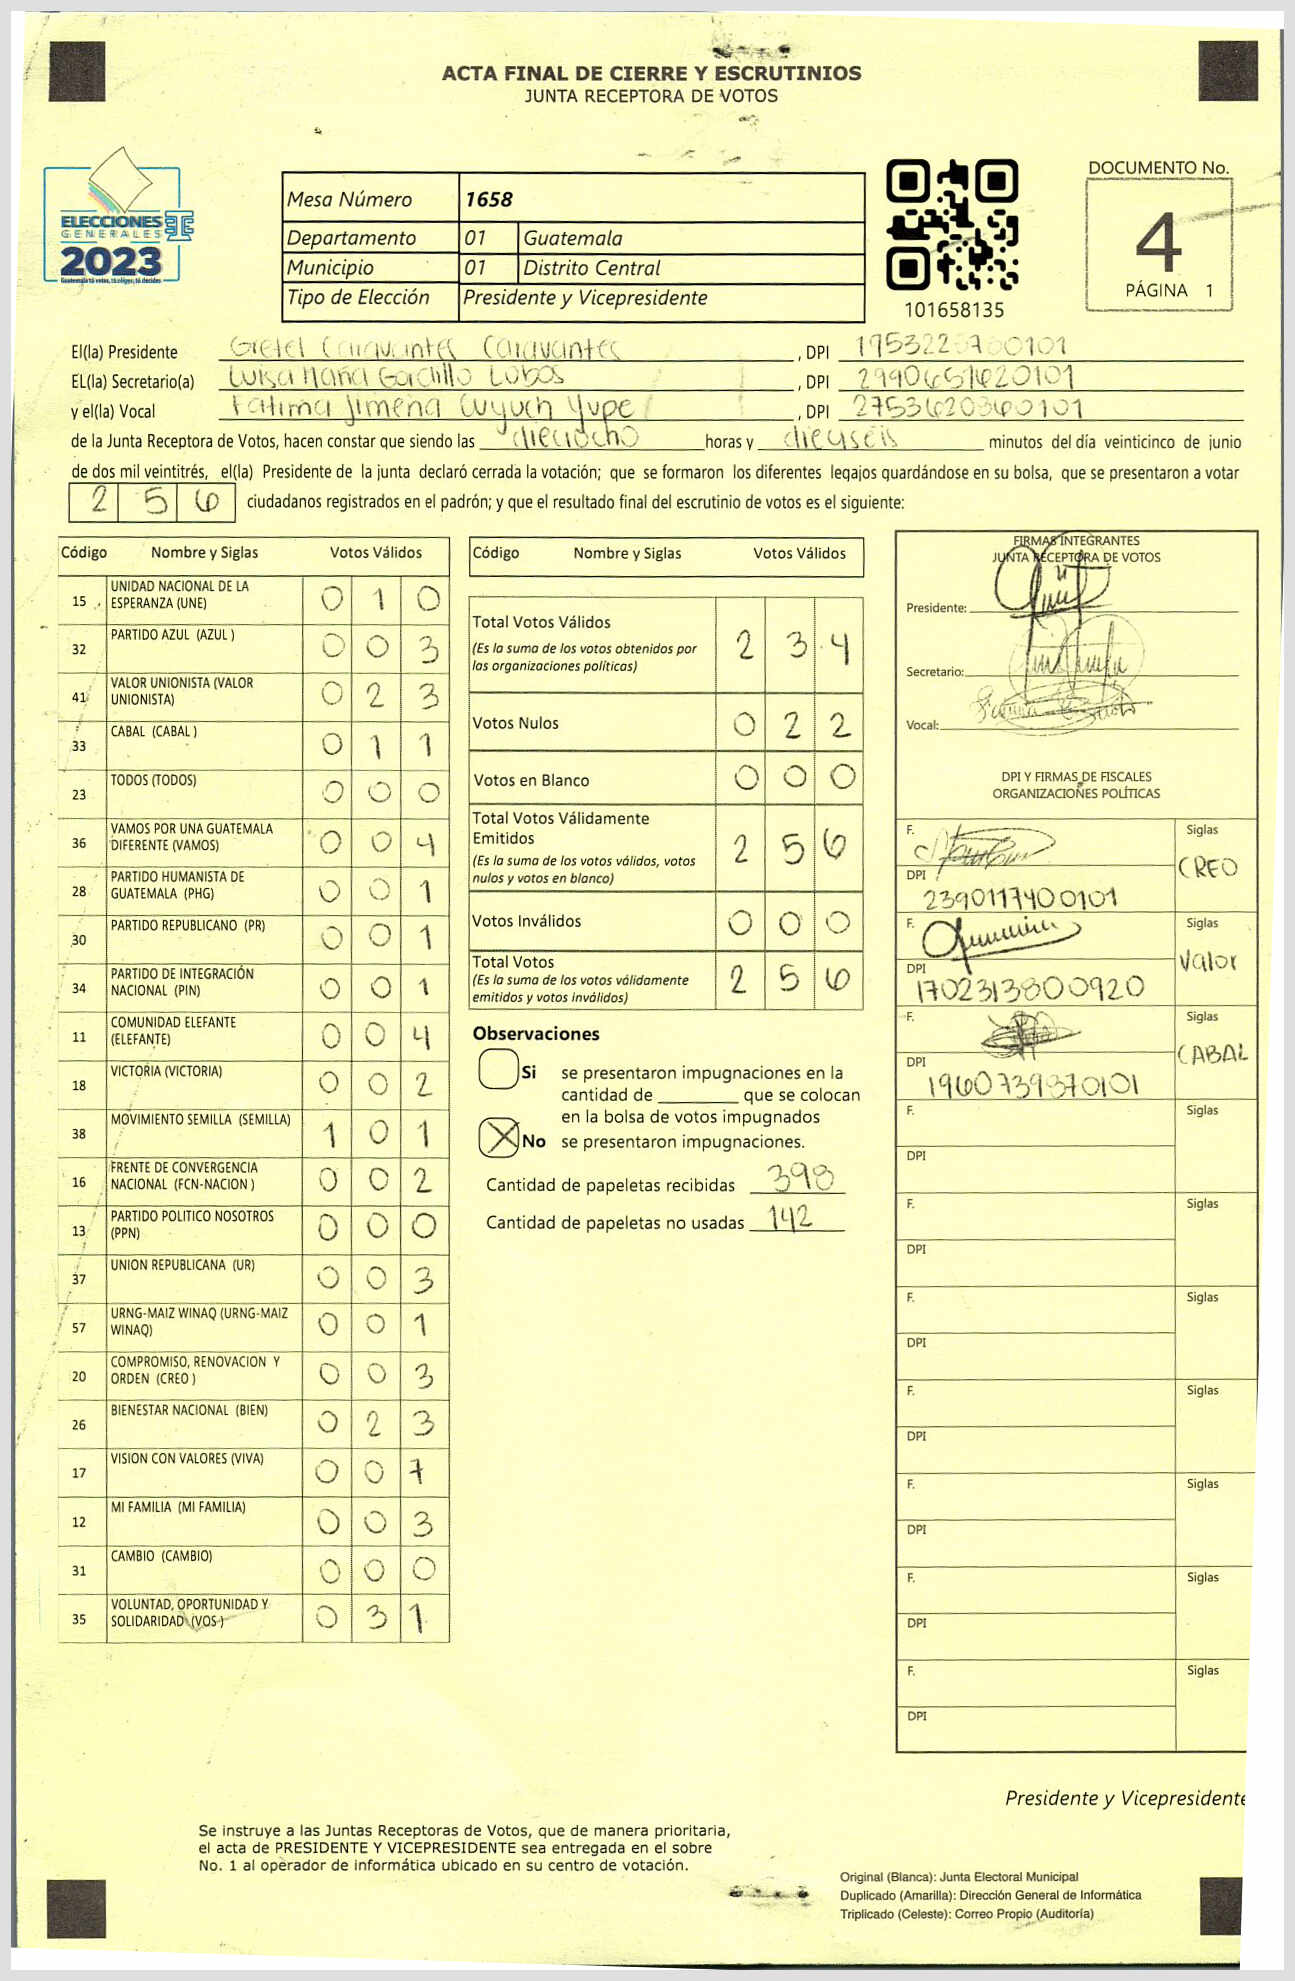 ACTA FINAL DE CIERRE Y ESCRUTINIOS
JUNTA RECEPTORA DE VOTOS
ELECCIONES
GENERALES
2023
Guatemala tú votas, tú eliges, tú decides
Mesa Número 1658
Departamento 01 Guatemala
Municipio 01 Distrito Central
Tipo de Elección Presidente y Vicepresidente
101658135
DOCUMENTO No.
4
PÁGINA 1
El(la) Presidente Gretel Caravantes Caravantes, DPI
EL(la) Secretario(a) Luisa Maria Gordillo Lobos, DPI 2990651620101
y el(la) Vocal Fatima Jimena Cuyuch Yupe, DPI 2753620360101
de la Junta Receptora de Votos, hacen constar que siendo las dieciocho horas y dieciseis minutos del día veinticinco de junio
de dos mil veintitrés, el(la) Presidente de la junta declaró cerrada la votación; que se formaron los diferentes legajos guardándose en su bolsa, que se presentaron a votar
256 ciudadanos registrados en el padrón; y que el resultado final del escrutinio de votos es el siguiente:
Código Nombre y Siglas Votos Válidos
15 UNIDAD NACIONAL DE LA
ESPERANZA (UNE) 0 1 0
32 PARTIDO AZUL (AZUL ) 0 0 3
41 VALOR UNIONISTA (VALOR
UNIONISTA) 0 2 3
33 CABAL (CABAL ) 0 1 1
23 TODOS (TODOS) 0 0 0
36 VAMOS POR UNA GUATEMALA
DIFERENTE (VAMOS) 0 0 4
28 PARTIDO HUMANISTA DE
GUATEMALA (PHG) 0 0 1
30 PARTIDO REPUBLICANO (PR) 0 0 1
34 PARTIDO DE INTEGRACIÓN
NACIONAL (PIN) 0 0 1
11 COMUNIDAD ELEFANTE
(ELEFANTE) 0 0 4
18 VICTORIA (VICTORIA) 0 0 2
38 MOVIMIENTO SEMILLA (SEMILLA) 1 0 1
16 FRENTE DE CONVERGENCIA
NACIONAL (FCN-NACION ) 0 0 2
13 PARTIDO POLITICO NOSOTROS
(PPN) 0 0 0
37 UNION REPUBLICANA (UR) 0 0 3
57 URNG-MAIZ WINAQ (URNG-MAIZ
WINAQ) 0 0 1
20 COMPROMISO, RENOVACION Y
ORDEN (CREO ) 0 0 3
26 BIENESTAR NACIONAL (BIEN) 0 2 3
17 VISION CON VALORES (VIVA) 0 0 7
12 MI FAMILIA (MI FAMILIA) 0 0 3
31 CAMBIO (CAMBIO) 0 0 0
35 VOLUNTAD, OPORTUNIDAD Y
SOLIDARIDAD (VOS ) 0 3 1
Código Nombre y Siglas Votos Válidos
Total Votos Válidos 2 3 4
(Es la suma de los votos obtenidos por
las organizaciones políticas)
Votos Nulos 0 2 2
Votos en Blanco 0 0 0
Total Votos Válidamente
Emitidos 2 5 6
(Es la suma de los votos válidos, votos
nulos y votos en blanco)
Votos Inválidos 0 0 0
Total Votos 2 5 6
(Es la suma de los votos válidamente
emitidos y votos inválidos)
Observaciones
Si se presentaron impugnaciones en la
cantidad de ________ que se colocan
en la bolsa de votos impugnados
X No se presentaron impugnaciones.
Cantidad de papeletas recibidas 398
Cantidad de papeletas no usadas 142
FIRMAS INTEGRANTES
JUNTA RECEPTORA DE VOTOS
Presidente:
Secretario:
Vocal:
DPI Y FIRMAS DE FISCALES
ORGANIZACIONES POLÍTICAS
F. Siglas
CREO
DPI
2390117400101
F. Siglas
Valor
DPI
1702313800920
F. Siglas
CABAL
DPI
1960739370101
F. Siglas
DPI
F. Siglas
DPI
F. Siglas
DPI
F. Siglas
DPI
F. Siglas
DPI
F. Siglas
DPI
F. Siglas
DPI
Presidente y Vicepresidente
Se instruye a las Juntas Receptoras de Votos, que de manera prioritaria,
el acta de PRESIDENTE Y VICEPRESIDENTE sea entregada en el sobre
No. 1 al operador de informática ubicado en su centro de votación.
Original (Blanca): Junta Electoral Municipal
Duplicado (Amarilla): Dirección General de Informática
Triplicado (Celeste): Correo Propio (Auditoría)